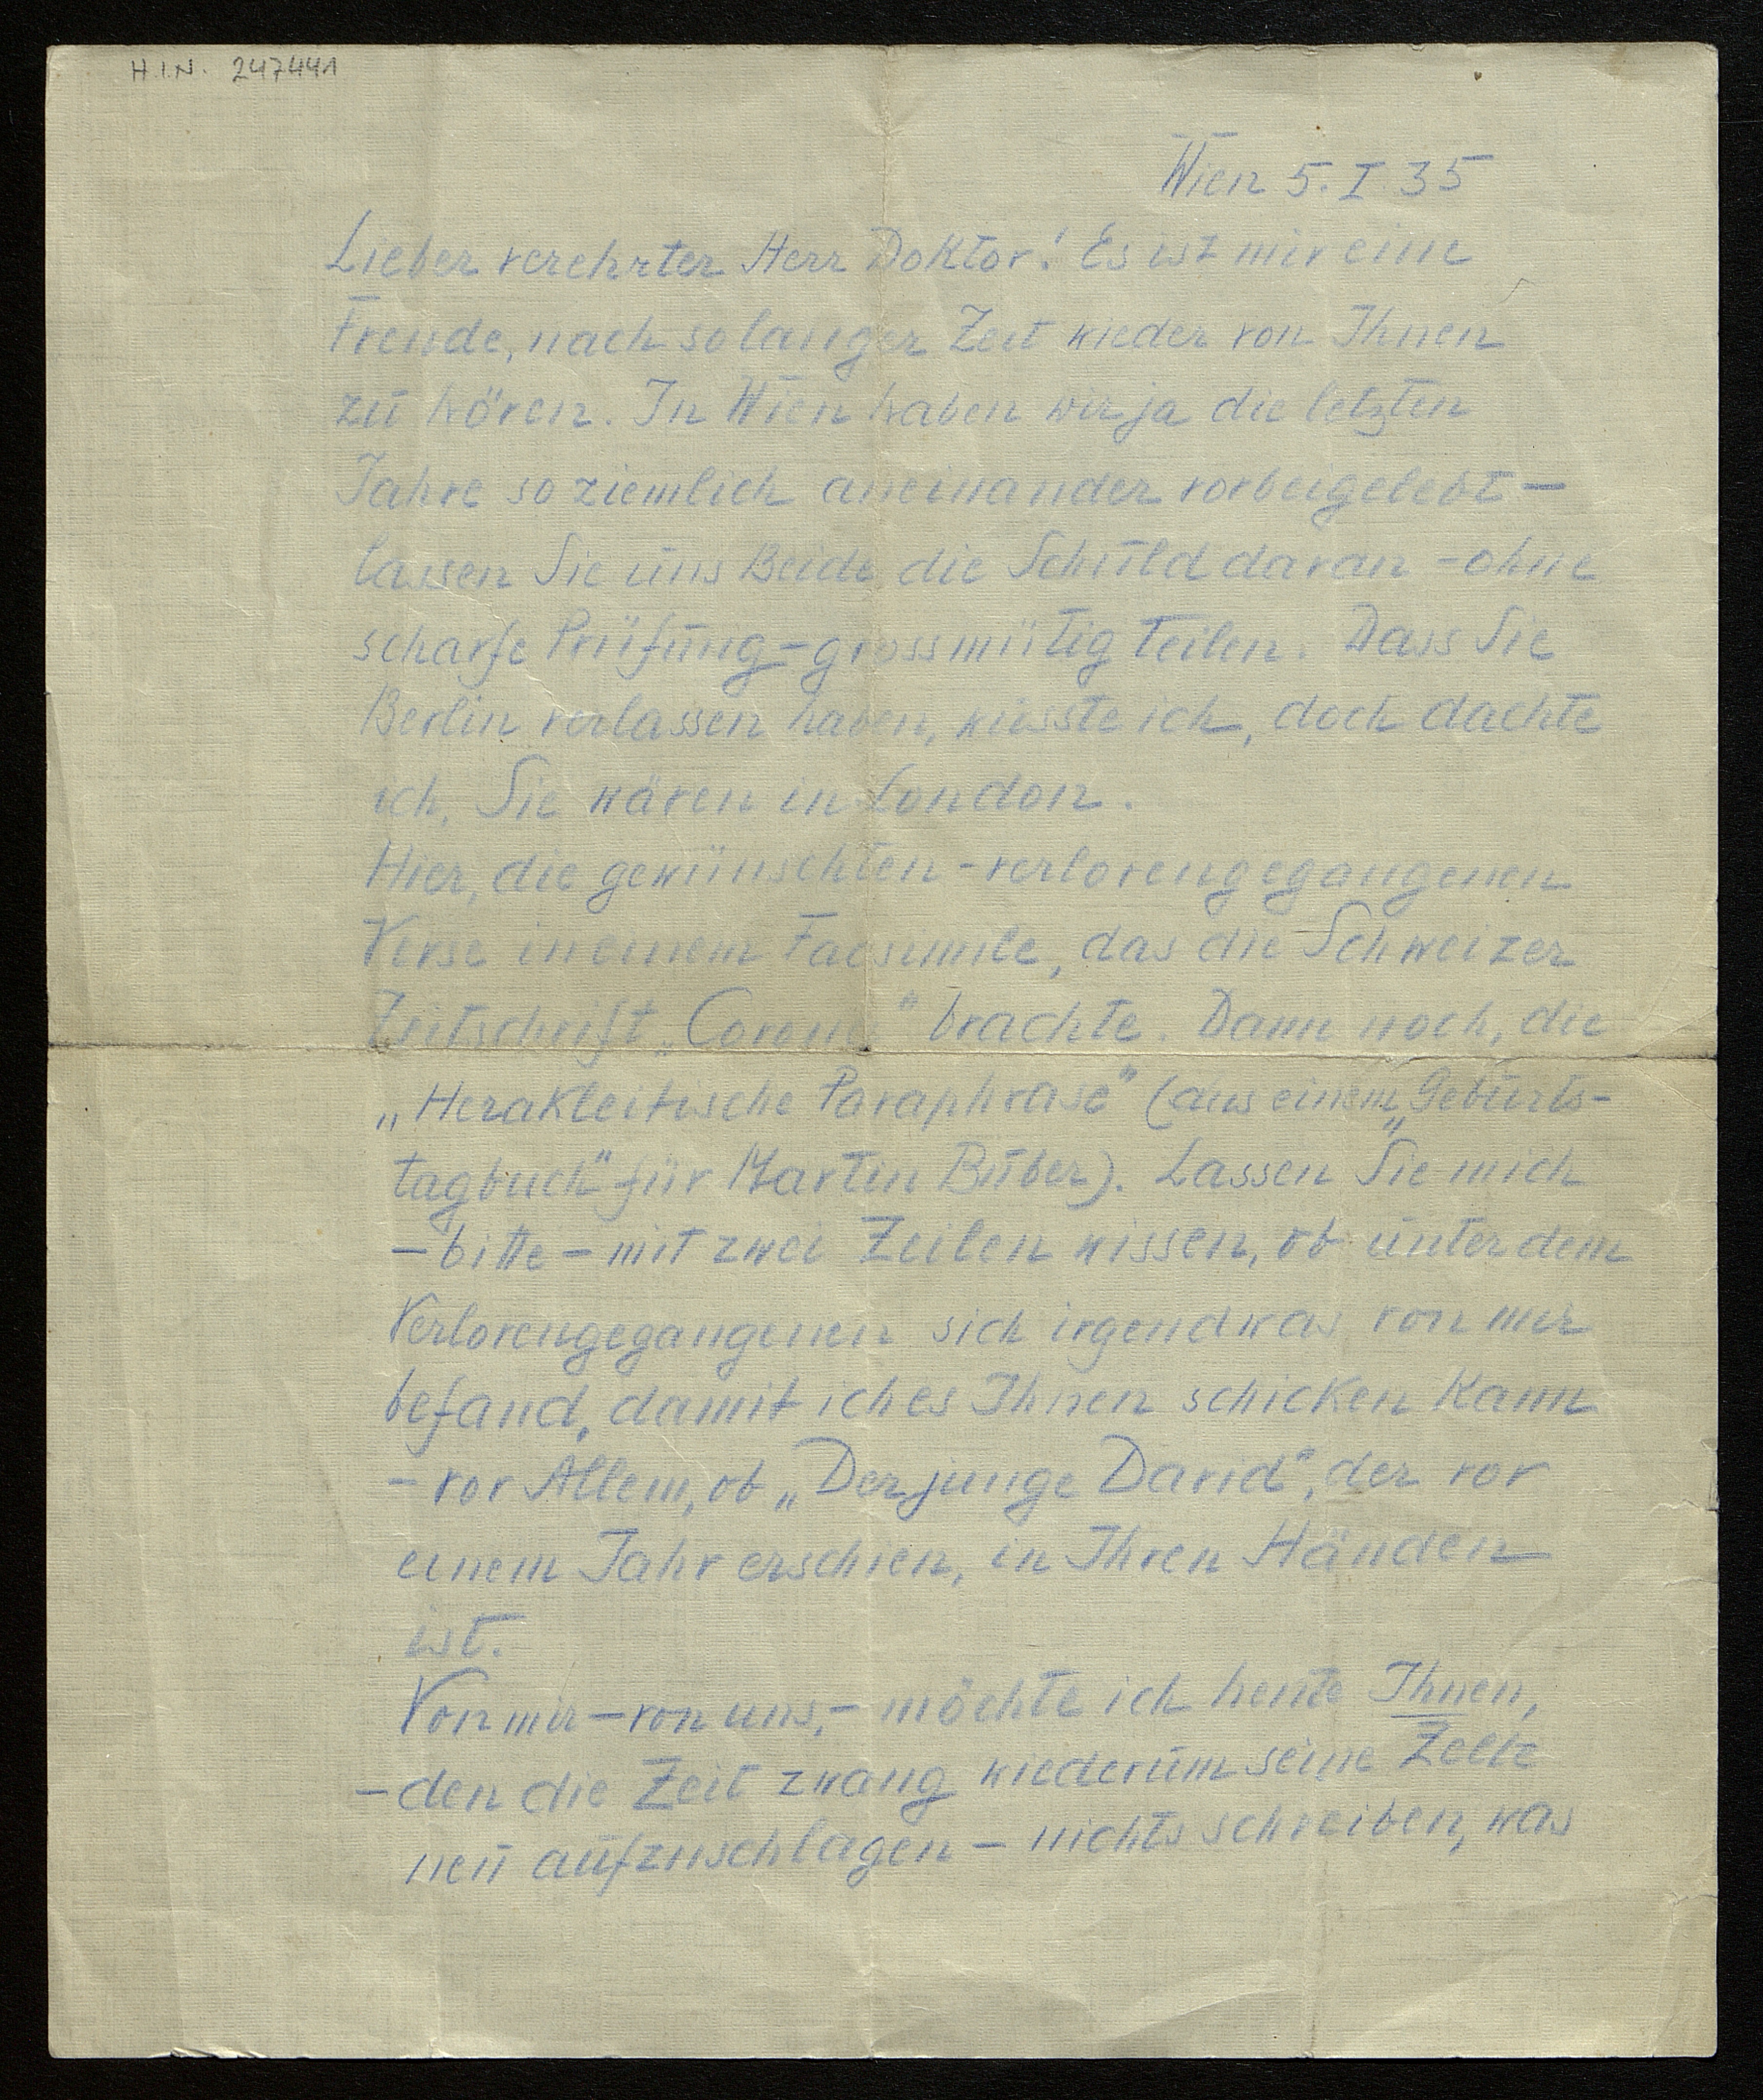 H.I.N. 247441
Wien 5. I 35
Lieber verehrter Herr Doktor! Es ist mir eine
Freude, nach so langer Zeit wieder von Ihnen
zu hören. In Wien haben wir ja die letzten
Jahre so ziemlich aneinander vorbeigelebt —
lassen Sie uns Beide die Schuld daran - ohne
scharfe Prüfung - grossmütig teilen. Dass Sie
Berlin verlassen haben, wusste ich, doch dachte
ich, Sie wären in London.
Hier, die gewünschten - verlorengegangenen
Verse in einem Facsimile, das die Schweizer
Zeitschrift „Corona“ brachte. Dann noch, die
„Herakleitische Paraphrase“ (aus einem „Geburts-
tagbuch“ für Martin Buber). Lassen Sie mich
- bitte - mit zwei Zeilen wissen, ob unter dem
Verlorengegangenen sich irgendwas von mir
befand, damit ich es Ihnen schicken kann
- vor Allem, ob „Der junge David“, der vor
einem Jahr erschien, in Ihren Händen
ist.
Von mir - von uns, - möchte ich heute Ihnen,
- den die Zeit zwang wiederum seine Zelte
neu aufzuschlagen - nichts schreiben, was